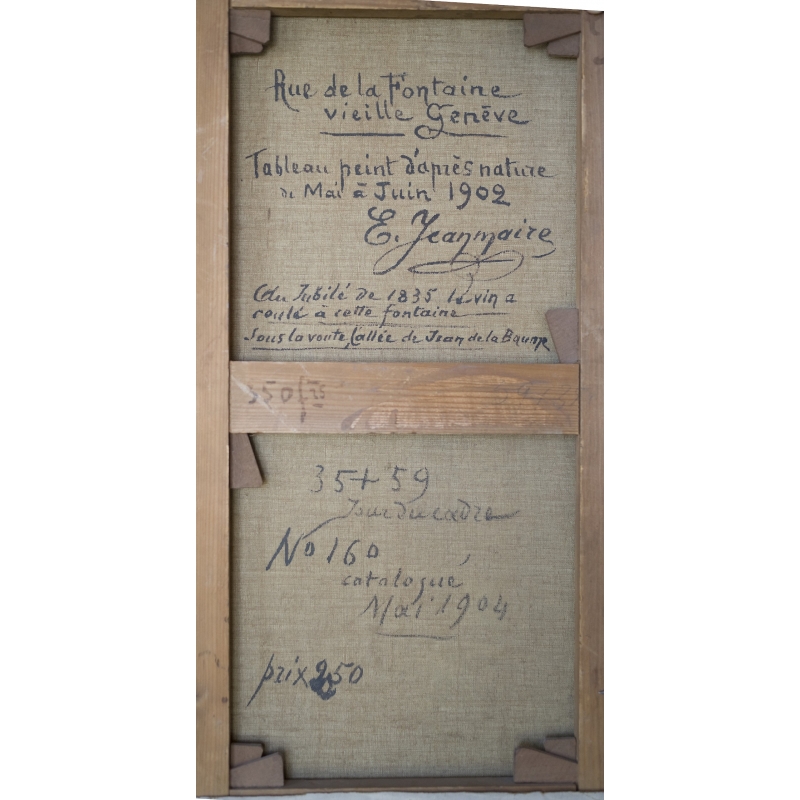 Rue de la Fontaine
vieille Genève
Tableau peint d'après nature
de Mai à Juin 1902
E. Jeanmaire
(Au Jubilé de 1835 le vin a
coulé à cette fontaine
Sous la voute, l'allée de Jean de la Baume
350 f
35 + 59
Jour du cadre
No 160
catalogué
Mai 1904
prix 250